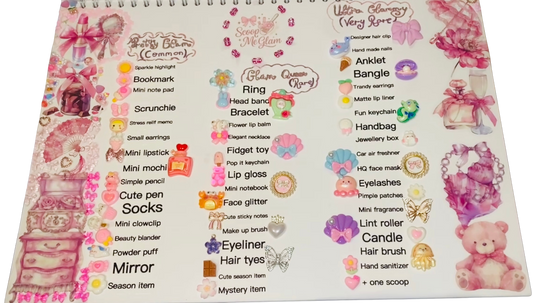 Pretty Glam
(Common)
Sparkle highlight
Bookmark
Mini note pad
Scrunchie
Stress relif memo
Small earrings
Mini lipstick
Mini mochi
Simple pencil
Cute pen
Socks
Mini clowclip
Beauty blander
Powder puff
Mirror
Season item
Scoop
Me Glam
Glam Queen
(Rare)
Ring
Head band
Bracelet
Flower lip balm
Elegant necklace
Fidget toy
Pop it keychain
Lip gloss
Mini notebook
Face glitter
Cute sticky notes
Make up brush
Eyeliner
Hair tyes
Cute season item
Mystery item
Ultra Glammy
(Very Rare)
Designer hair clip
Hand made nails
Anklet
Bangle
Trandy earrings
Matte lip liner
Fun keychain
Handbag
Jewellery box
Car air freshner
HQ face mask
Eyelashes
Pimple patches
Mini fragrance
Lint roller
Candle
Hair brush
Hand sanitizer
+ one scoop